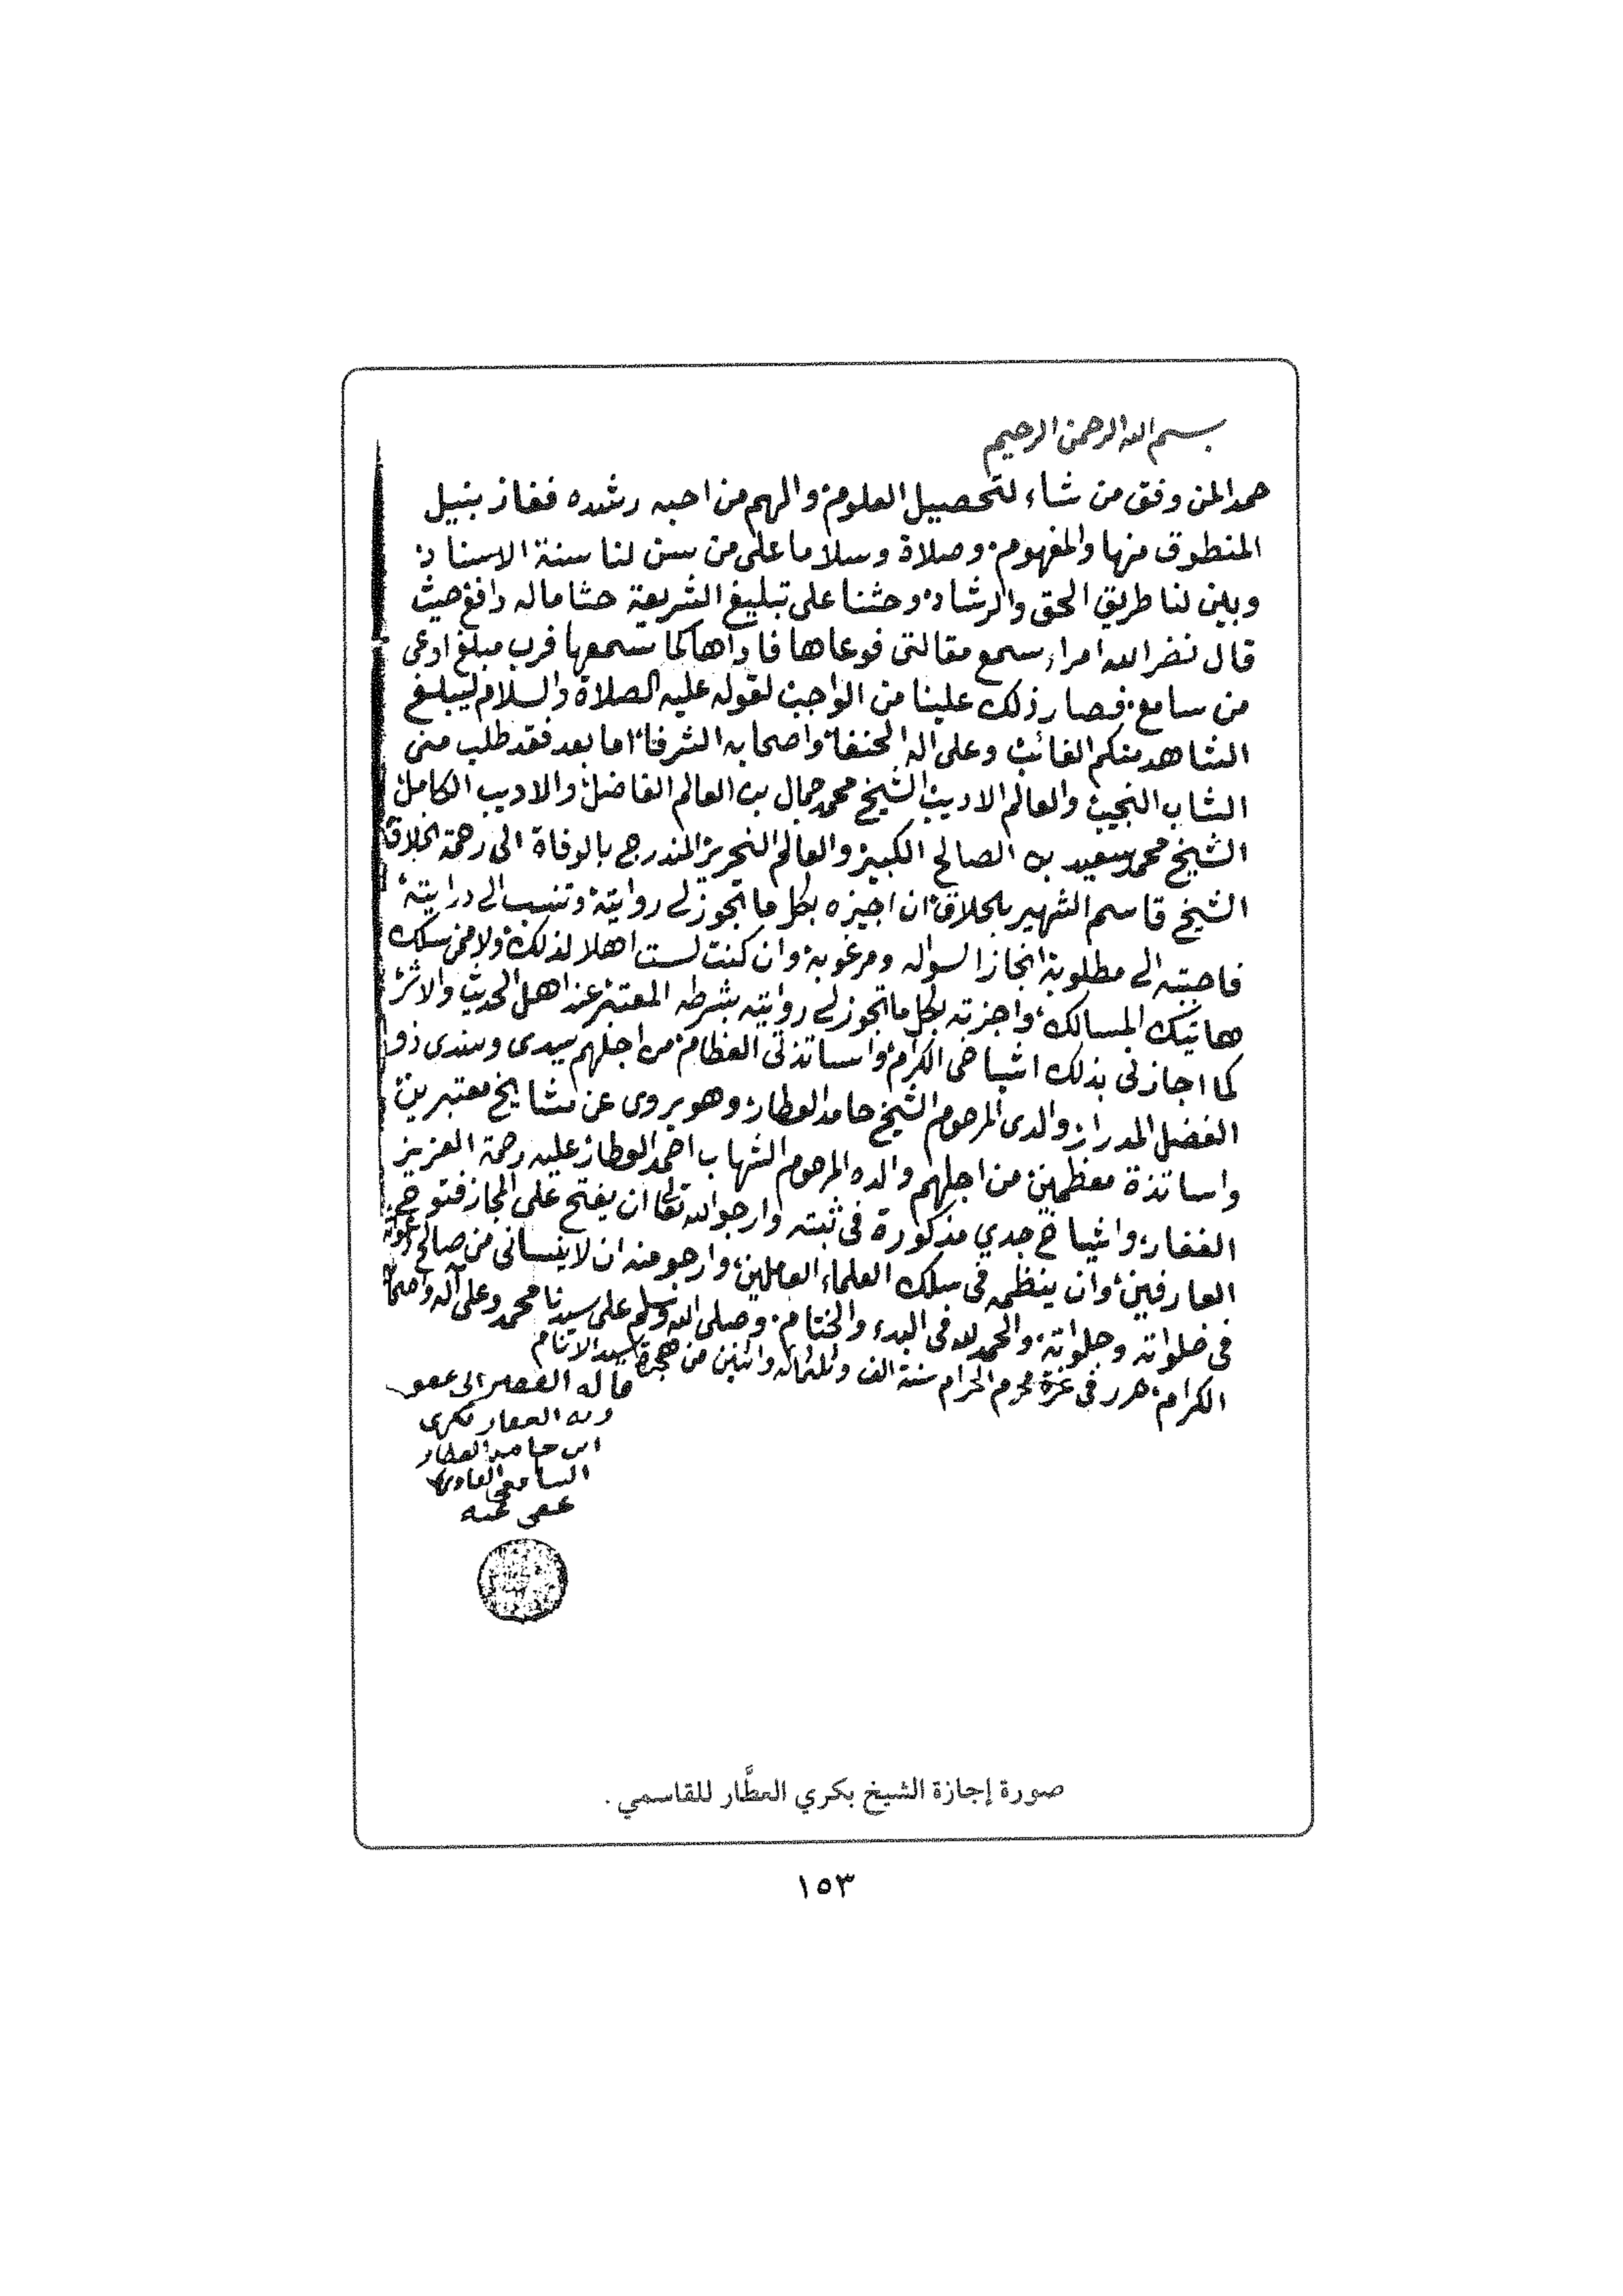 بسم الله الرحمن الرحيم
حمدا لمن وفق من شاء لتحصيل العلوم والهم من احبه رشده ففاز بنيل
المنطوق منها والمفهوم وصلاة وسلاما على من سن لنا سنة الاسناد
وبين لنا طريق الحق والرشاد وحثنا على تبليغ الشريعة حثا ماله دافع حيث
قال نضر الله امراء سمع مقالتى فوعاها فاداها كما سمعها فرب مبلغ اوعى
من سامع فصار ذلك علينا من الواجب لقوله عليه الصلاة والسلام ليبلغ
الشاهد منكم الغائب وعلى اله الحنفا واصحابه الشرفا اما بعد فقد طلب منى
الشاب النجيب والعالم الاديب الشيخ محمد جمال بن العالم الفاضل والاديب الكامل
الشيخ محمد سعيد بن الصالح الكبير والعالم النحرير المندرج بالوفاة الى رحمة الخلاق
الشيخ قاسم الشهير بالحلاق ان اجيزه بكل ما تجوز لي روايته وتنسب الي درايته
فاجبته الى مطلوبه انجازا لسؤاله ومرغوبه وان كنت لست اهلا لذلك ولا ممن سلك
هاتيك المسالك واجزته بكل ما تجوز لي روايته بشرطه المعتبر عند اهل الحديث والاثر
كما اجازنى بذلك اشياخى الكرام واساتذتى العظام من اجلهم سيدى وسندى ذو
الفضل المدرار والدى المرحوم الشيخ حامد العطار وهو يروى عن مشايخ معتبرين
واساتذة معظمين من اجلهم والده المرحوم الشهاب احمد العطار عليه رحمة العزيز
الغفار واشياخ جدي مذكورة فى ثبته وارجو الله تعالى ان يفتح على المجاز فتوح
العارفين وان ينظمه فى سلك العلماء العاملين وارجو منه ان لا ينسانى من صالح دعواته
فى خلواته وجلواته والحمد لله فى البدء والختام وصلى الله وسلم على سيدنا محمد وعلى آله واصحابه
الكرام حرر فى غرة محرم الحرام سنة الف وثلثمائه واثنين من هجرة سيد الانام
قاله الفقير الى عفو
ربه الغفار بكرى
ابن حامد العطار
الشافعى القادرى
عفى عنه
صورة إجازة الشيخ بكري العطَّار للقاسمي .
١٥٣